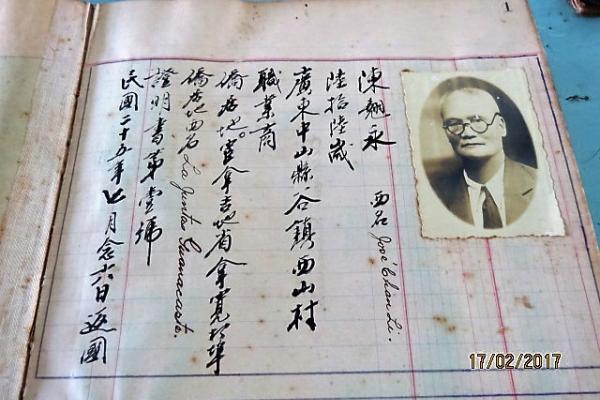 1
陳永 西名 José Chan Li.
陸拾陸歲
廣東中山縣谷鎮西山村
職業商
僑居地。宦拿吉地省拿寬打埠
僑居地西名 La Junta Guanacaste.
證明書第壹號
民國二十五年七月念六日返國
17/02/2017